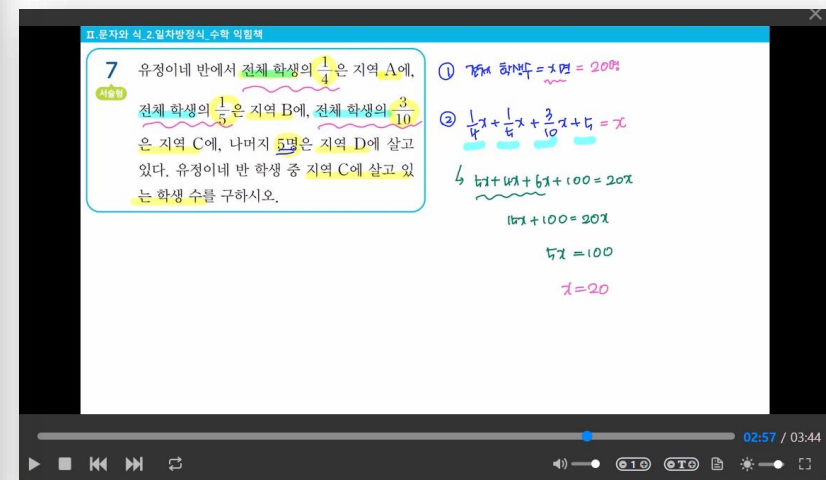 II.문자와 식_2.일차방정식_수학 익힘책
7 유정이네 반에서 전체 학생의 1/4은 지역 A에,
서술형
전체 학생의 1/5은 지역 B에, 전체 학생의 3/10
은 지역 C에, 나머지 5명은 지역 D에 살고
있다. 유정이네 반 학생 중 지역 C에 살고 있
는 학생 수를 구하시오.
① 전체 학생수 = x명 = 20명
② 1/4x + 1/5x + 3/10x + 5 = x
5x + 4x + 6x + 100 = 20x
15x + 100 = 20x
5x = 100
x = 20
02:57 / 03:44
1.0
T